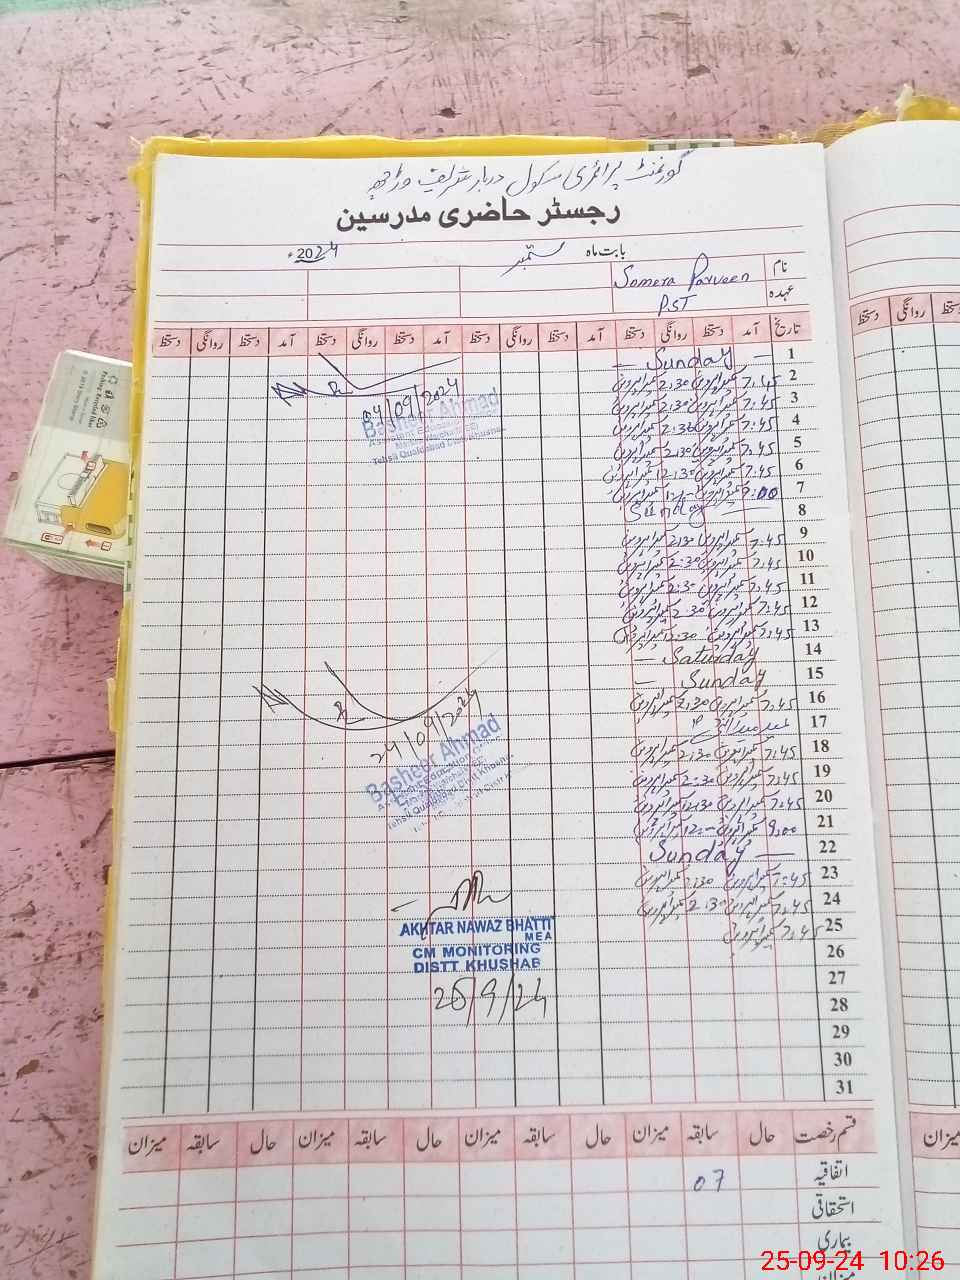 گورنمنٹ پرائمری سکول دربار شریف وڑاچھہ
رجسٹر حاضری مدرسین
بابت ماہ ستمبر 2024ء
نام Somera Parveen
عہدہ PST
تاریخ آمد دستخط روانگی دستخط آمد دستخط روانگی دستخط آمد دستخط روانگی دستخط آمد دستخط روانگی دستخط
1 — Sunday —
2 7:45 سمیرا پروین 2:30 سمیرا پروین
3 7:45 سمیرا پروین 2:30 سمیرا پروین
4 7:45 سمیرا پروین 2:30 سمیرا پروین
5 7:45 سمیرا پروین 2:30 سمیرا پروین
6 7:45 سمیرا پروین 12:30 سمیرا پروین
7 سمیرا پروین سمیرا پروین
8 Sunday
9 7:45 سمیرا پروین 2:30 سمیرا پروین
10 7:45 سمیرا پروین 2:30 سمیرا پروین
11 7:45 سمیرا پروین 2:30 سمیرا پروین
12 7:45 سمیرا پروین 2:30 سمیرا پروین
13 7:45 سمیرا پروین 12:30 سمیرا پروین
14 — Saturday
15 — Sunday
16 7:45 سمیرا پروین 2:30 سمیرا پروین
17 عید میلاد النبی
18 7:45 سمیرا پروین 2:30 سمیرا پروین
19 7:45 سمیرا پروین 2:30 سمیرا پروین
20 7:45 سمیرا پروین 12:30 سمیرا پروین
21 9:00 سمیرا پروین سمیرا پروین
22 Sunday —
23 7:45 سمیرا پروین 2:30 سمیرا پروین
24 7:45 سمیرا پروین 2:30 سمیرا پروین
25 7:45 سمیرا پروین
26
27
28
29
30
31
04/09/2024
Basheer Ahmad
Tehsil Quaidabad Distt Khushab
24/09/2024
Basheer Ahmad
Tehsil Quaidabad Distt Khushab
AKHTAR NAWAZ BHATTI
MEA
CM MONITORING
DISTT KHUSHAB
25/9/24
قسم رخصت حال سابقہ میزان حال سابقہ میزان حال سابقہ میزان حال سابقہ میزان
اتفاقیہ 07
استحقاقی
بیماری
دستخط روانگی دستخط
میزان
25-09-24 10:26